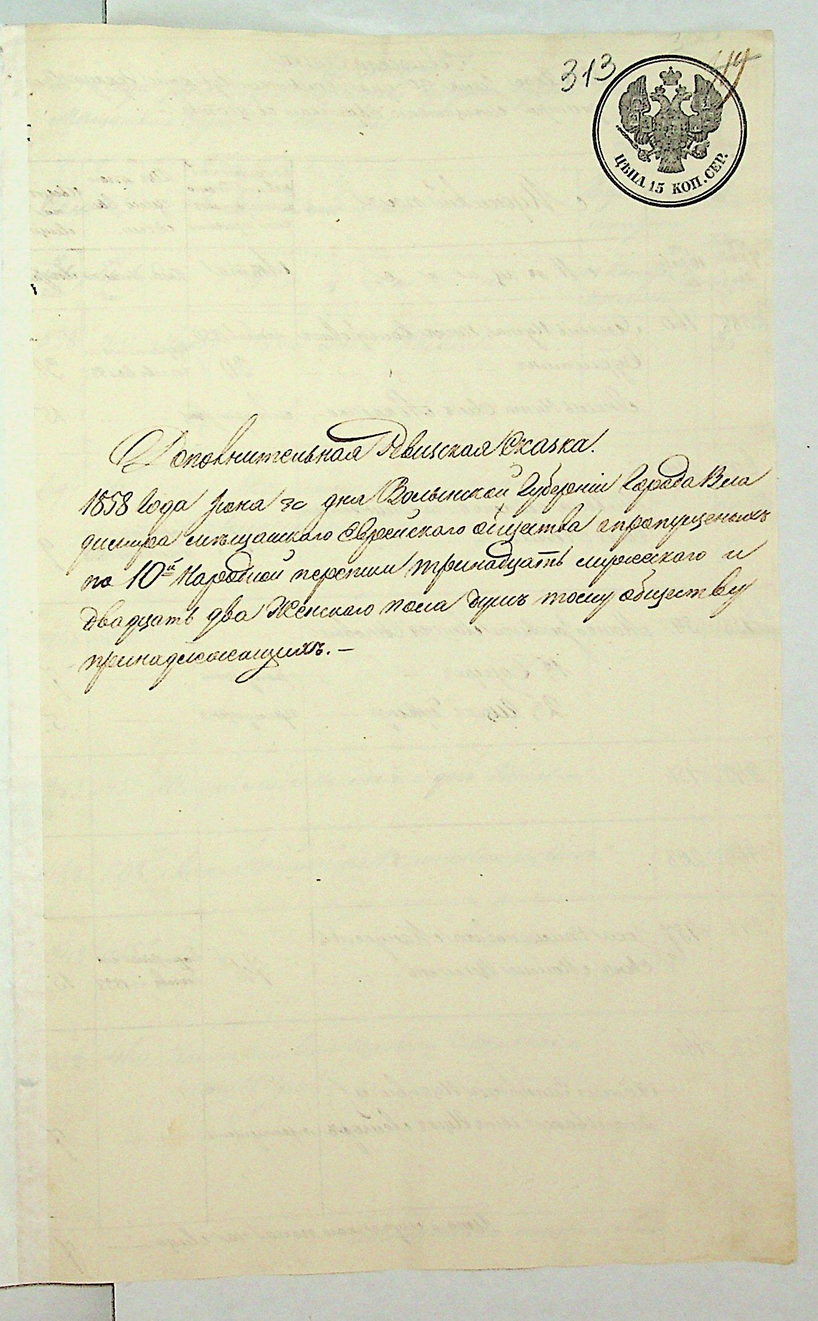 313
44
ЦѢНА 15 КОП. СЕР.
Дополнительная Ревизская Сказка.
1858 Года Іюна 30 дня Волынской Губерніи Города Вла
димира мѣщанского Еврейского общества о пропущеныхъ
по 10й Народной переписи тринадцать мужеского и
двадцать два Женского пола душъ тому обществу
принадлежащихъ. —